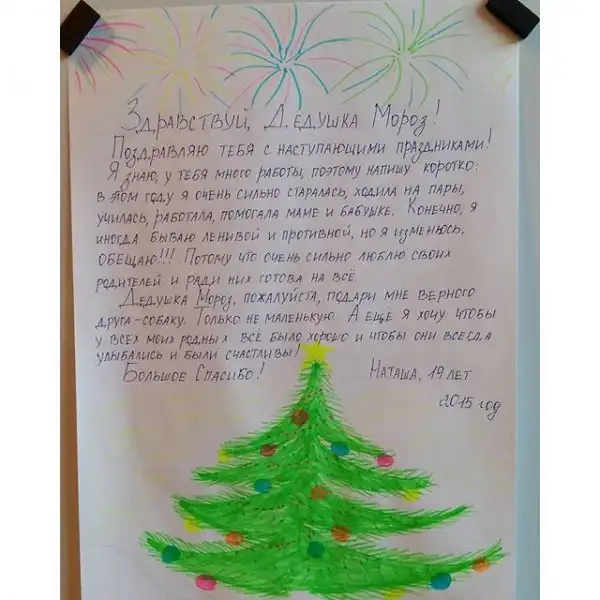 Здравствуй, Дедушка Мороз!
Поздравляю тебя с наступающими праздниками!
Я знаю, у тебя много работы, поэтому напишу коротко:
в этом году я очень сильно старалась, ходила на пары,
училась, работала, помогала маме и бабушке. Конечно, я
иногда бываю ленивой и противной, но я изменюсь,
обещаю!!! Потому что очень сильно люблю своих
родителей и ради них готова на всё.
Дедушка Мороз, пожалуйста, подари мне верного
друга-собаку. Только не маленькую. А еще я хочу чтобы
у всех моих родных всё было хорошо и чтобы они всегда
улыбались и были счастливы!
Большое Спасибо!
Наташа, 19 лет
2015 год